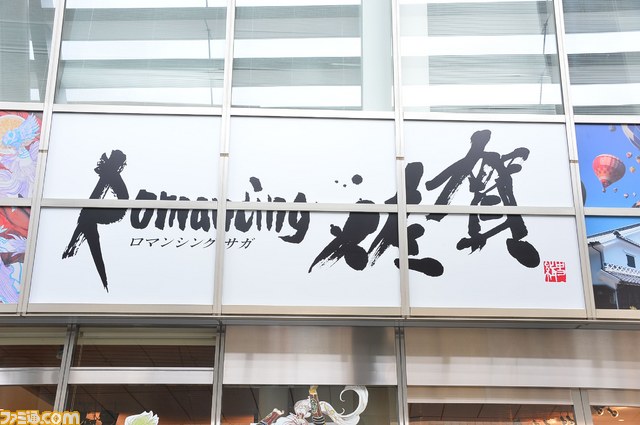 Romancing 佐賀
ロマンシング サガ
ファミ通.com